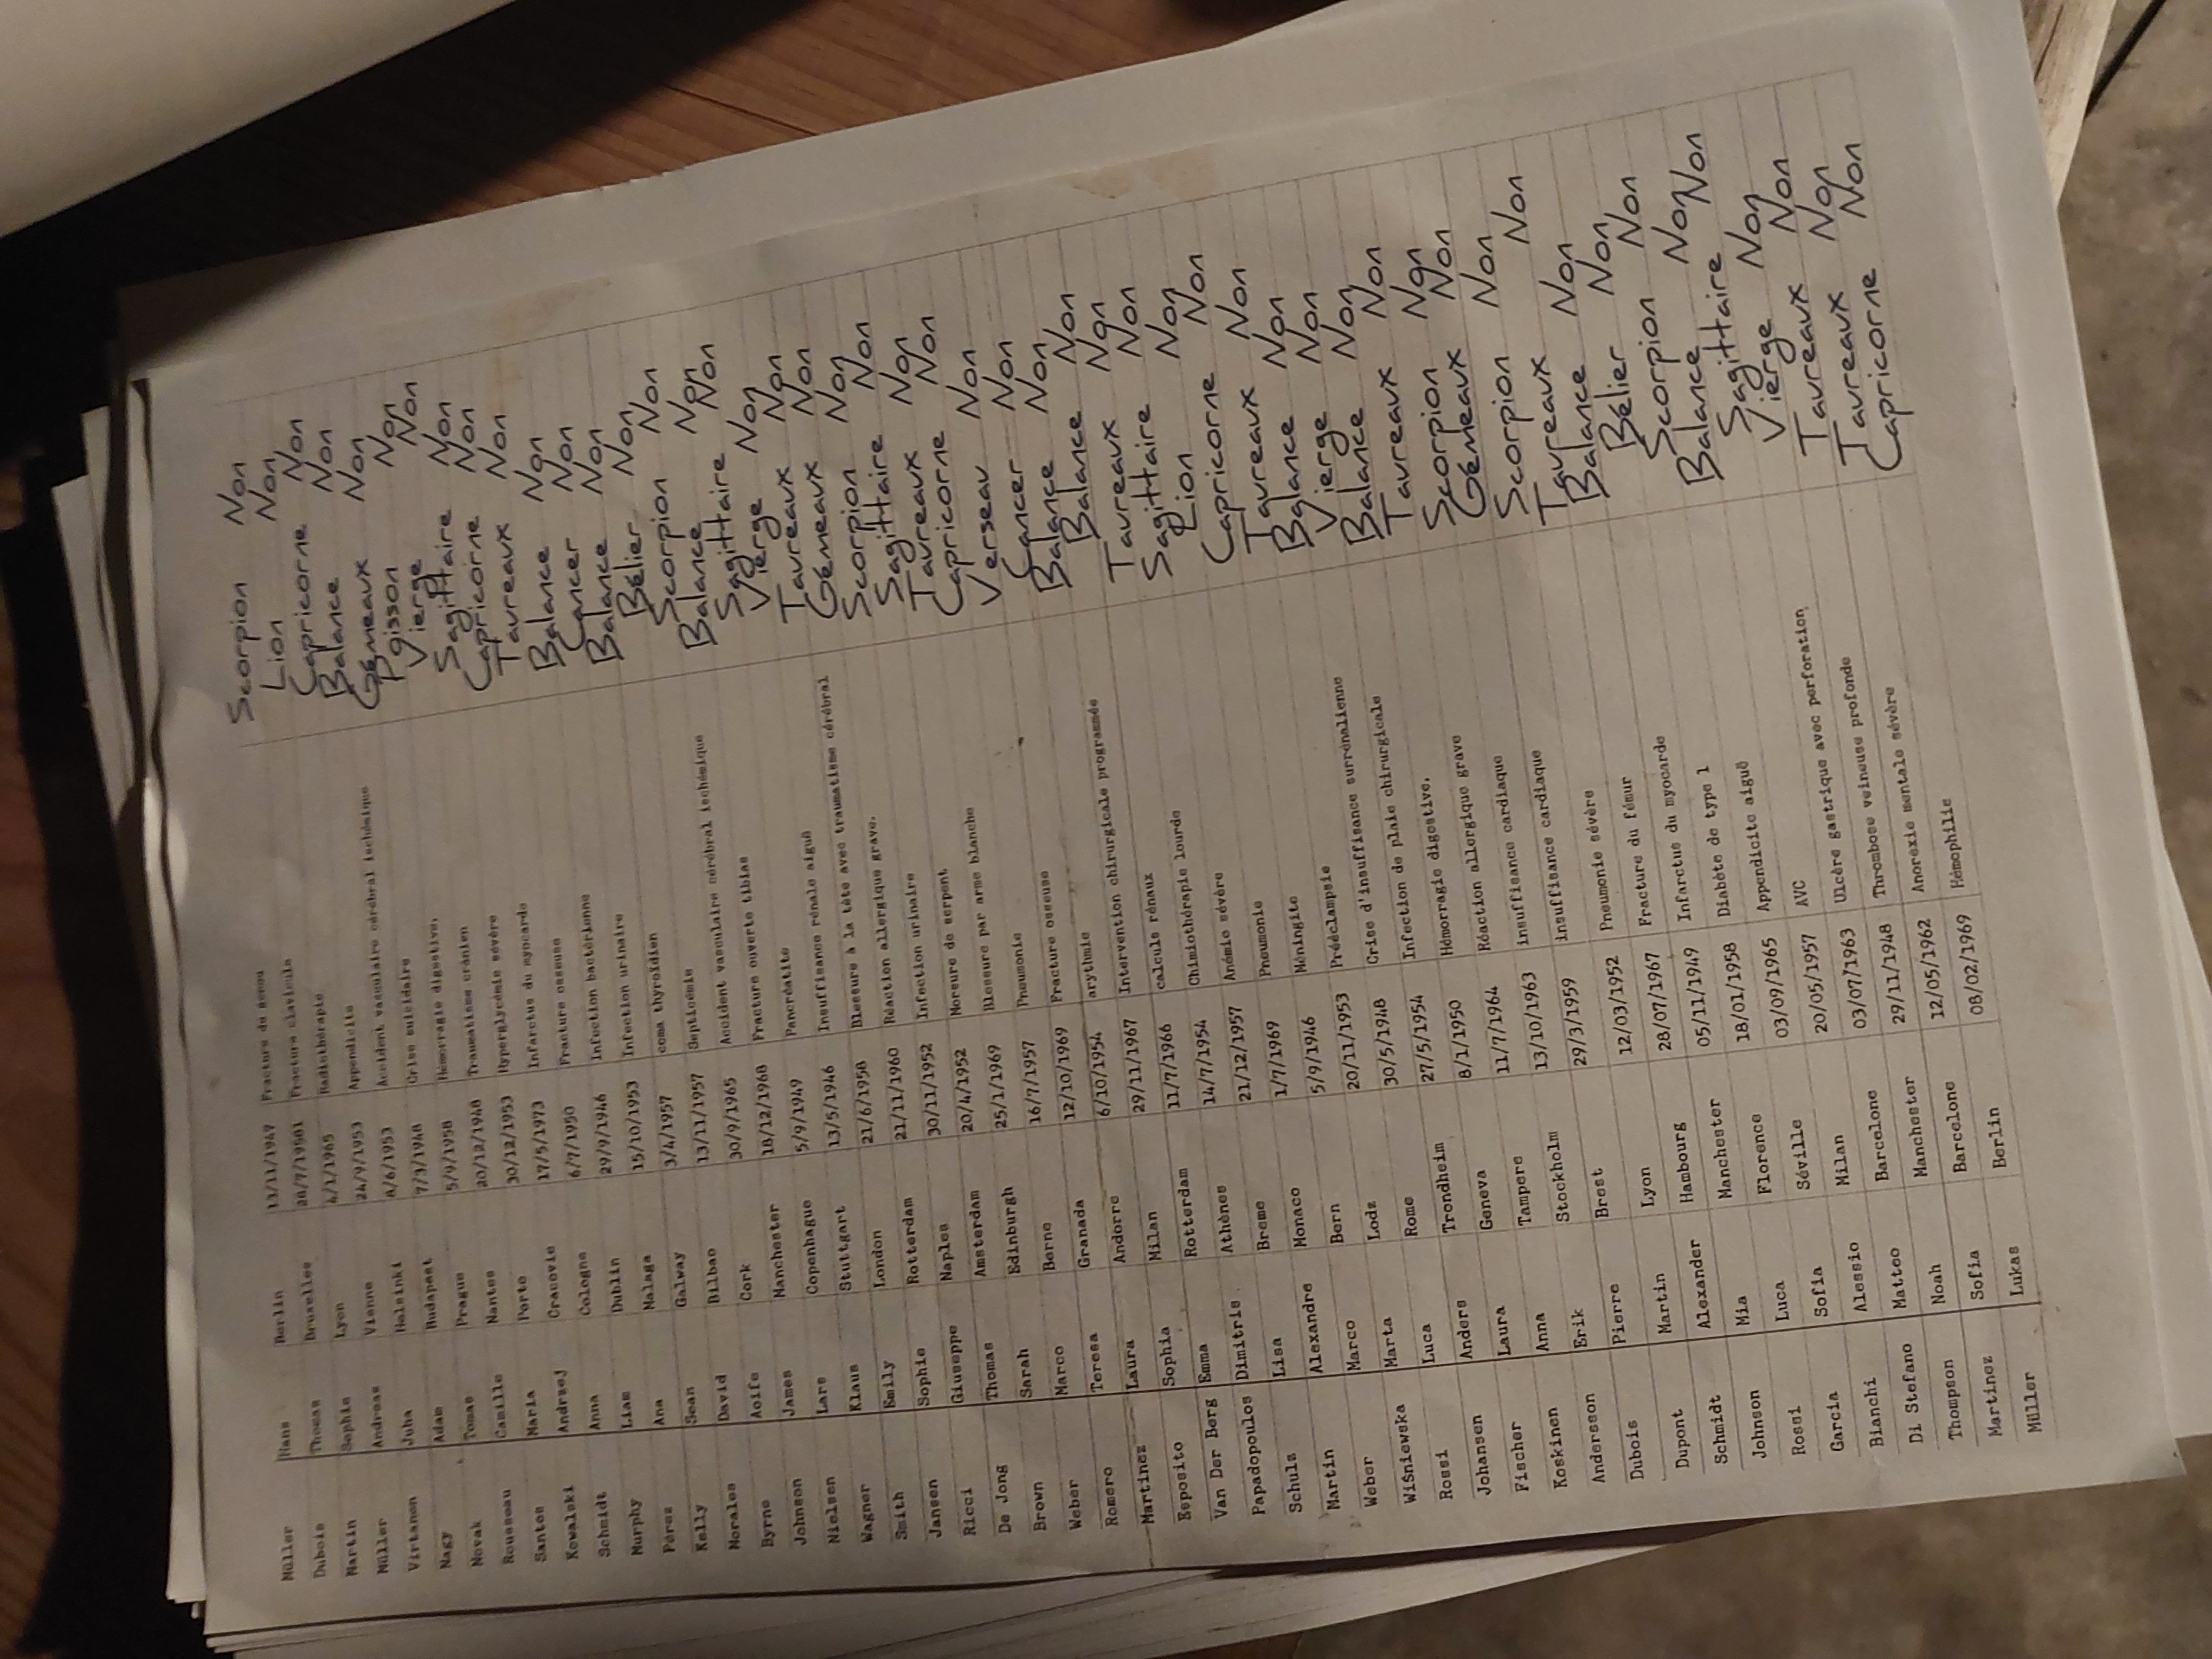 Müller Hans Berlin 13/11/1947 Fracture du genou Scorpion Non
Dubois Thomas Bruxelles 28/7/19581 Fracture clavicule Lion Non
Martin Sophie Lyon 4/1/1965 Radiothérapie Capricorne Non
Müller Andreas Vienne 24/9/1953 Appendicite Balance Non
Virtanen Juha Helsinki 8/6/1953 Accident vasculaire cérébral ischémique Gémeaux Non
Nagy Adam Budapest 7/3/1948 Crise suicidaire Poisson Non
Novak Tomas Prague 5/9/1958 Hémorragie digestive. Vierge Non
Rousseau Camille Nantes 20/12/1948 Traumatisme crânien Sagittaire Non
Santos Maria Porto 30/12/1953 Hyperglycémie sévère Capricorne Non
Kowalski Andrzej Cracovie 17/5/1973 Infarctus du myocarde Taureaux Non
Schmidt Anna Cologne 6/7/1950 Fracture osseuse Balance Non
Murphy Liam Dublin 29/9/1946 Infection bactérienne Cancer Non
Pérez Ana Malaga 15/10/1953 Infection urinaire Balance Non
Kelly Sean Galway 3/4/1957 coma thyroïdien Bélier Non
Morales David Bilbao 13/11/1957 Septicémie Scorpion Non
Byrne Aoife Cork 30/9/1965 Accident vasculaire cérébral ischémique Balance Non
Johnson James Manchester 18/12/1968 Fracture ouverte tibias Sagittaire Non
Nielsen Lars Copenhague 5/9/1949 Pancréatite Vierge Non
Wagner Klaus Stuttgart 13/5/1946 Insuffisance rénale aiguë Taureaux Non
Smith Emily London 21/6/1958 Blessure à la tête avec traumatisme cérébral Gémeaux Non
Jansen Sophie Rotterdam 21/11/1960 Réaction allergique grave. Scorpion Non
Ricci Giuseppe Naples 30/11/1952 Infection urinaire Sagittaire Non
De Jong Thomas Amsterdam 20/4/1952 Morsure de serpent Taureaux Non
Brown Sarah Edinburgh 25/1/1969 Blessure par arme blanche Capricorne Non
Weber Marco Berne 16/7/1957 Pneumonie Verseau Non
Romero Teresa Granada 12/10/1969 Fracture osseuse Cancer Non
Martinez Laura Andorre 6/10/1954 arythmie Balance Non
Esposito Sophia Milan 29/11/1967 Intervention chirurgicale programmée Balance Non
Van Der Berg Emma Rotterdam 11/7/1966 calculs rénaux Taureaux Non
Papadopoulos Dimitris Athènes 14/7/1954 Chimiothérapie lourde Sagittaire Non
Schulz Lisa Breme 21/12/1957 Anémie sévère Lion Non
Martin Alexandre Monaco 1/7/1969 Pneumonie Capricorne Non
Weber Marco Bern 5/9/1946 Méningite Taureaux Non
Wiśniewska Marta Lodz 20/11/1953 Prééclampsie Balance Non
Rossi Luca Rome 30/5/1948 Crise d'insuffisance surrénalienne Vierge Non
Johansen Anders Trondheim 27/5/1954 Infection de plaie chirurgicale Balance Non
Fischer Laura Geneva 8/1/1950 Hémorragie digestive. Taureaux Non
Koskinen Anna Tampere 11/7/1964 Réaction allergique grave Scorpion Non
Andersson Erik Stockholm 13/10/1963 insuffisance cardiaque Gémeaux Non
Dubois Pierre Brest 29/3/1959 insuffisance cardiaque Scorpion Non
Dupont Martin Lyon 12/03/1952 Pneumonie sévère Taureaux Non
Schmidt Alexander Hambourg 28/07/1967 Fracture du fémur Balance Non
Johnson Mia Manchester 05/11/1949 Infarctus du myocarde Bélier Non
Rossi Luca Florence 18/01/1958 Diabète de type 1 Scorpion Non
Garcia Sofia Séville 03/09/1965 Appendicite aiguë Balance Non
Bianchi Alessio Milan 20/05/1957 AVC Sagittaire Non
Di Stefano Matteo Barcelone 03/07/1963 Ulcère gastrique avec perforation Vierge Non
Thompson Noah Manchester 29/11/1948 Thrombose veineuse profonde Taureaux Non
Martinez Sofia Barcelone 12/05/1962 Anorexie mentale sévère Taureaux Non
Müller Lukas Berlin 08/02/1969 Hémophilie Capricorne Non